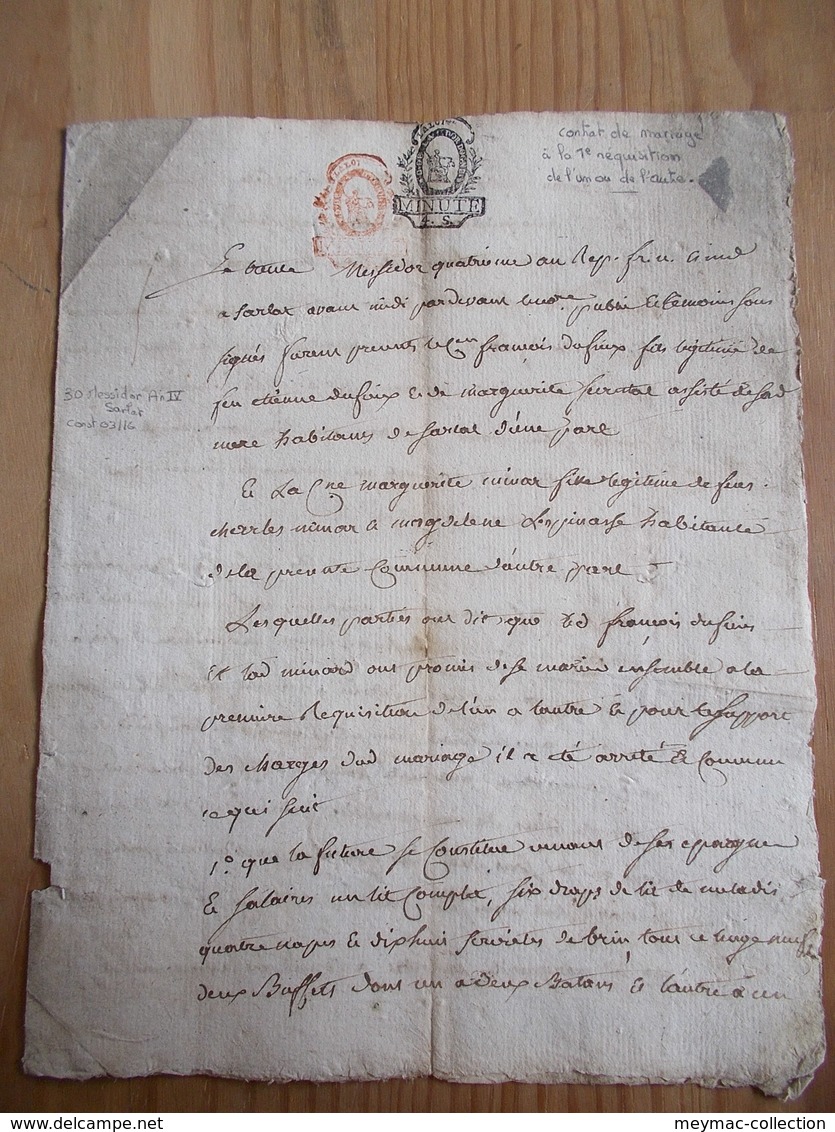 LA LOI
MINUTE
4. S.
contrat de mariage
à la 1e réquisition
de l'un ou de l'autre.
30 Messidor An IV
Sarlat
Messidor quatrieme an Rep. fr.
a sarlat avant midi pardevant publi Et temoins sous
signés furent presents le Cen françois fils legitime de
feu etienne Et de marguerite assisté de sad
mere habitans de sarlat d'une part
Et La Cne marguerite minar fille legitime de feus
charles minar & magdelene Lespinasse habitante
de la presente Commune d'autre part
Lesquelles parties ont dit que led françois
et lad minard ont promis de se marier ensemble a la
premiere Requisition de l'un a lautre Et pour le support
des charges dud mariage il a eté arrêté Et Convenu
ce qui suit
1o. que la future se Constitue de ses epargnes
Et salaires un lit Complet, six draps de lit de
quatre napes Et dixhuit serviétes de brin tout ce linge neuf
deux Buffets dont un a deux Batans Et l'autre à un
meymac-collection